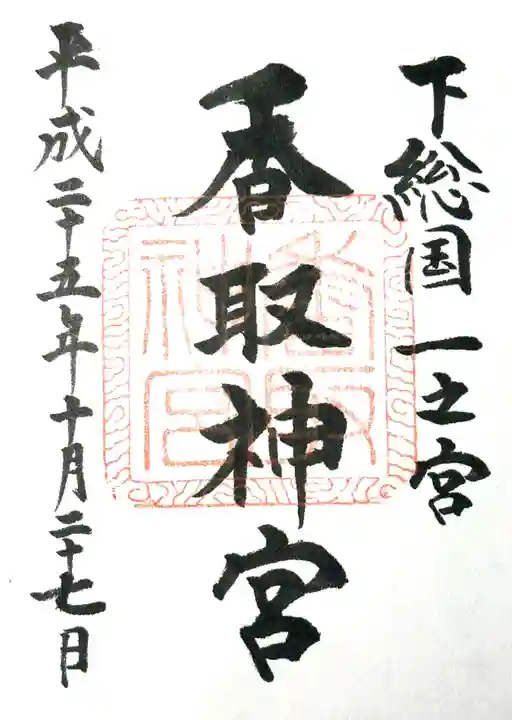 下総国一之宮
香取神宮
平成二十五年十月二十七日